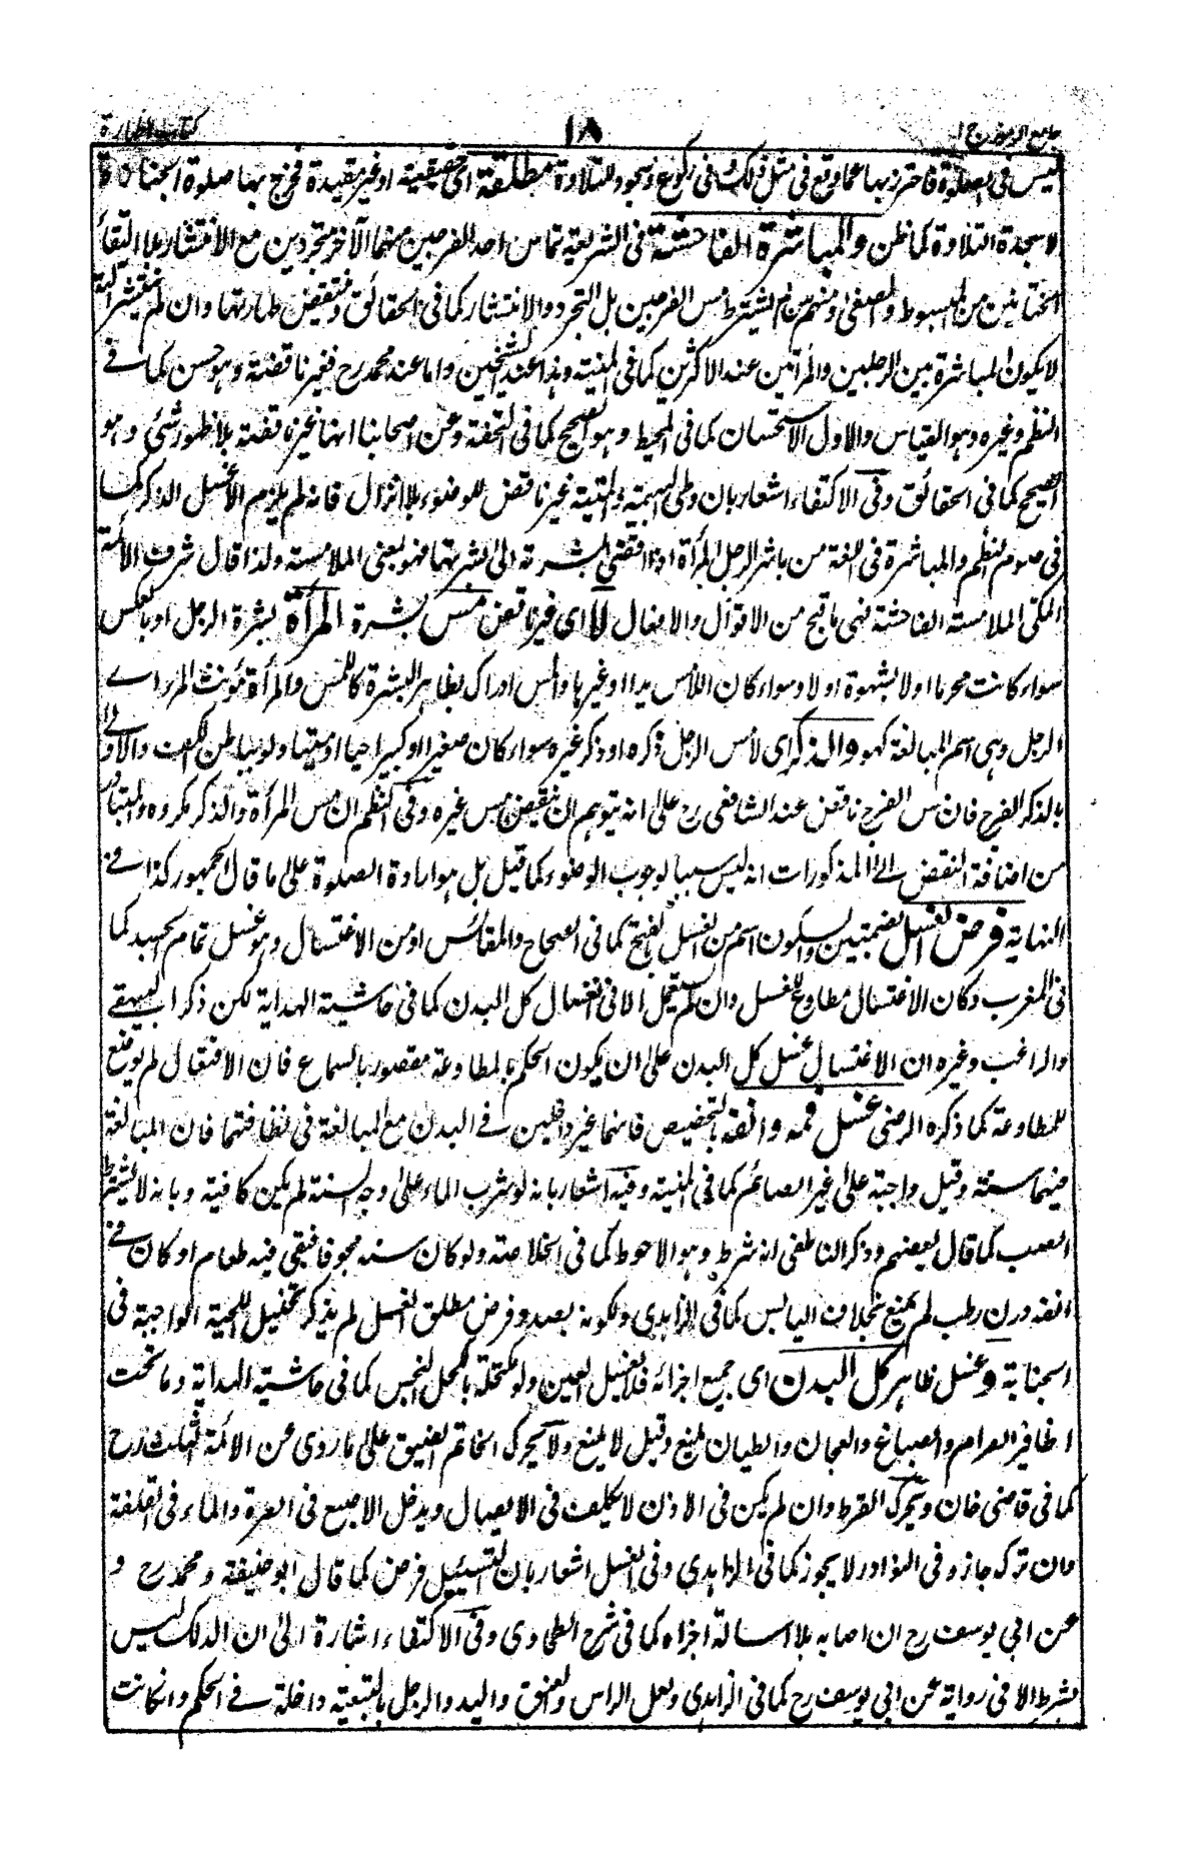 جامع الرموز ج ١
١٨
كتاب الطهارة
ليس فى الصلوة فاحترز بها عما وقع فى مثل ذلك فى ركوع وسجود للتلاوة مطلقة اى حقيقية او غير مقيدة فخرج بها صلوة الجنازة
لا سجدة التلاوة كما ظن والمباشرة الفاحشة فى الشريعة تماس احد الفرجين منهما الآخر متجردين مع الانتشار بلا التقاء
الختانين من المبسوط والمصفى ومنهم من لم يشترط مس الفرجين بل التجرد والانتشار كما فى الحقائق وتنقيض طهارتها وان لم ينتشر آلته
لا يكون المباشرة بين الرجلين والمرأتين عند الاكثرين كما فى المنية وهذا عند الشيخين واما عند محمد رح فغير ناقضة وهو حسن كما فى
النظم وغيره وهو القياس والاول الاستحسان كما فى المحيط وهو الصحيح كما فى التحفة وعن اصحابنا انها غير ناقضة بلا ظهور شئ وهو
الصحيح كما فى الحقائق وفى الاكتفاء اشعار بان وطى البهيمة والميتة غير ناقض للوضوء بلا انزال فانه لم يلزم الا غسل الذكر كما
فى صوم النظم والمباشرة فى اللغة من باشر الرجل المرأة اذا افضى بشرته الى بشرتها فهو بمعنى الملامسة ولذا قال شرف الائمة
المكى الملامسة الفاحشة فهى ما قبح من الاقوال والافعال لا اى غير ناقض مس بشرة المرأة بشرة الرجل او بالعكس
سواء كانت محرما او لا بشهوة او لا وسواء كان اللامس يدا او غيرها والمس ادراك بظاهر البشرة كاللمس والمرأة مونث المرء اے
الرجل وهى اسم البالغة كهو والذكر اى لا مس الرجل ذكره او ذكر غيره سواء كان صغيرا او كبيرا حيا او ميتا ولو بباطن الكف والاولى
بالذكر الفرج فان مس الفرج ناقض عند الشافعى رح على انه يتوهم ان ينقض مس غيره وفى النظم ان مس المرأة والذكر مكروه والمتبادر
من اضافة النقض الى المذكورات انه ليس سببا لوجوب الوضوء كما قيل بل هو ارادة الصلوة على ما قال الجمهور كذا فى
النهاية فرض الغسل بضمتين والسكون اسم من الغسل بالفتح كما فى الصحاح والمقائس او من الاغتسال وهو غسل تمام الجسد كما
فى المغرب وكان الاغتسال مطاوع للغسل وان لم يستعمل الا فى غسل كل البدن كما فى حاشية الهداية لكن ذكر البيهقى
والراغب وغيره ان الاغتسال غسل كل البدن على ان يكون الحكم بالمطاوعة مقصور بالسماع فان الافتعال لم يوضع
للمطاوعة كما ذكره الرضى غسل فمه وانفه بالتخصيص فانهما غير داخلين فى البدن مع المبالغة فى نظافتهما فان المبالغة
فيهما سنة وقيل واجبة على غير الصائم كما فى المنية وفيه اشعار بانه لو شرب الماء على وجه السنة لم يكن كافية وبانه لا يشترط
الصب كما قال بعضهم وذكر الناطفى انه شرط وهو الاحوط كما فى الخلاصة ولو كان سنه مجوفا فبقى فيه طعام او كان فى
انفه درن رطب لم يمنع بخلاف اليابس كما فى الزاهدى ولكونه بصدد فرض مطلق الغسل لم يذكر تخليل اللحية الواجبة فى
الجنابة وغسل ظاهر كل البدن اى جميع اجزائه فلا يغسل العين ولو مكتحلة بالكحل النجس كما فى حاشية الهداية وما تحت
اظافير الصرام والصباغ والعجان والطيان يمنع وقيل لا يمنع ولا يحرك الخاتم الضيق على ما روى عن الائمة الثلث رح
كما فى قاضى خان ويحرك القرط وان لم يكن فى الاذن لا يكلف فى الايصال ويدخل الاصبع فى السرة والماء فى القلفة
وان ترك جاز وفى النوادر لا يجوز كما فى الزاهدى وفى الغسل اشعار بان التسييل فرض كما قال ابو حنيفة ومحمد رح و
عن ابى يوسف رح ان اصابه بلا اسالة اجزاه كما فى شرح الطحاوى وفى الاكتفاء اشارة الى ان الدلك ليس
بشرط الا فى رواية عن ابى يوسف رح كما فى الزاهدى ولعل الراس والعنق واليد والرجل بالتبعية داخلة فى الحكم وانكانت